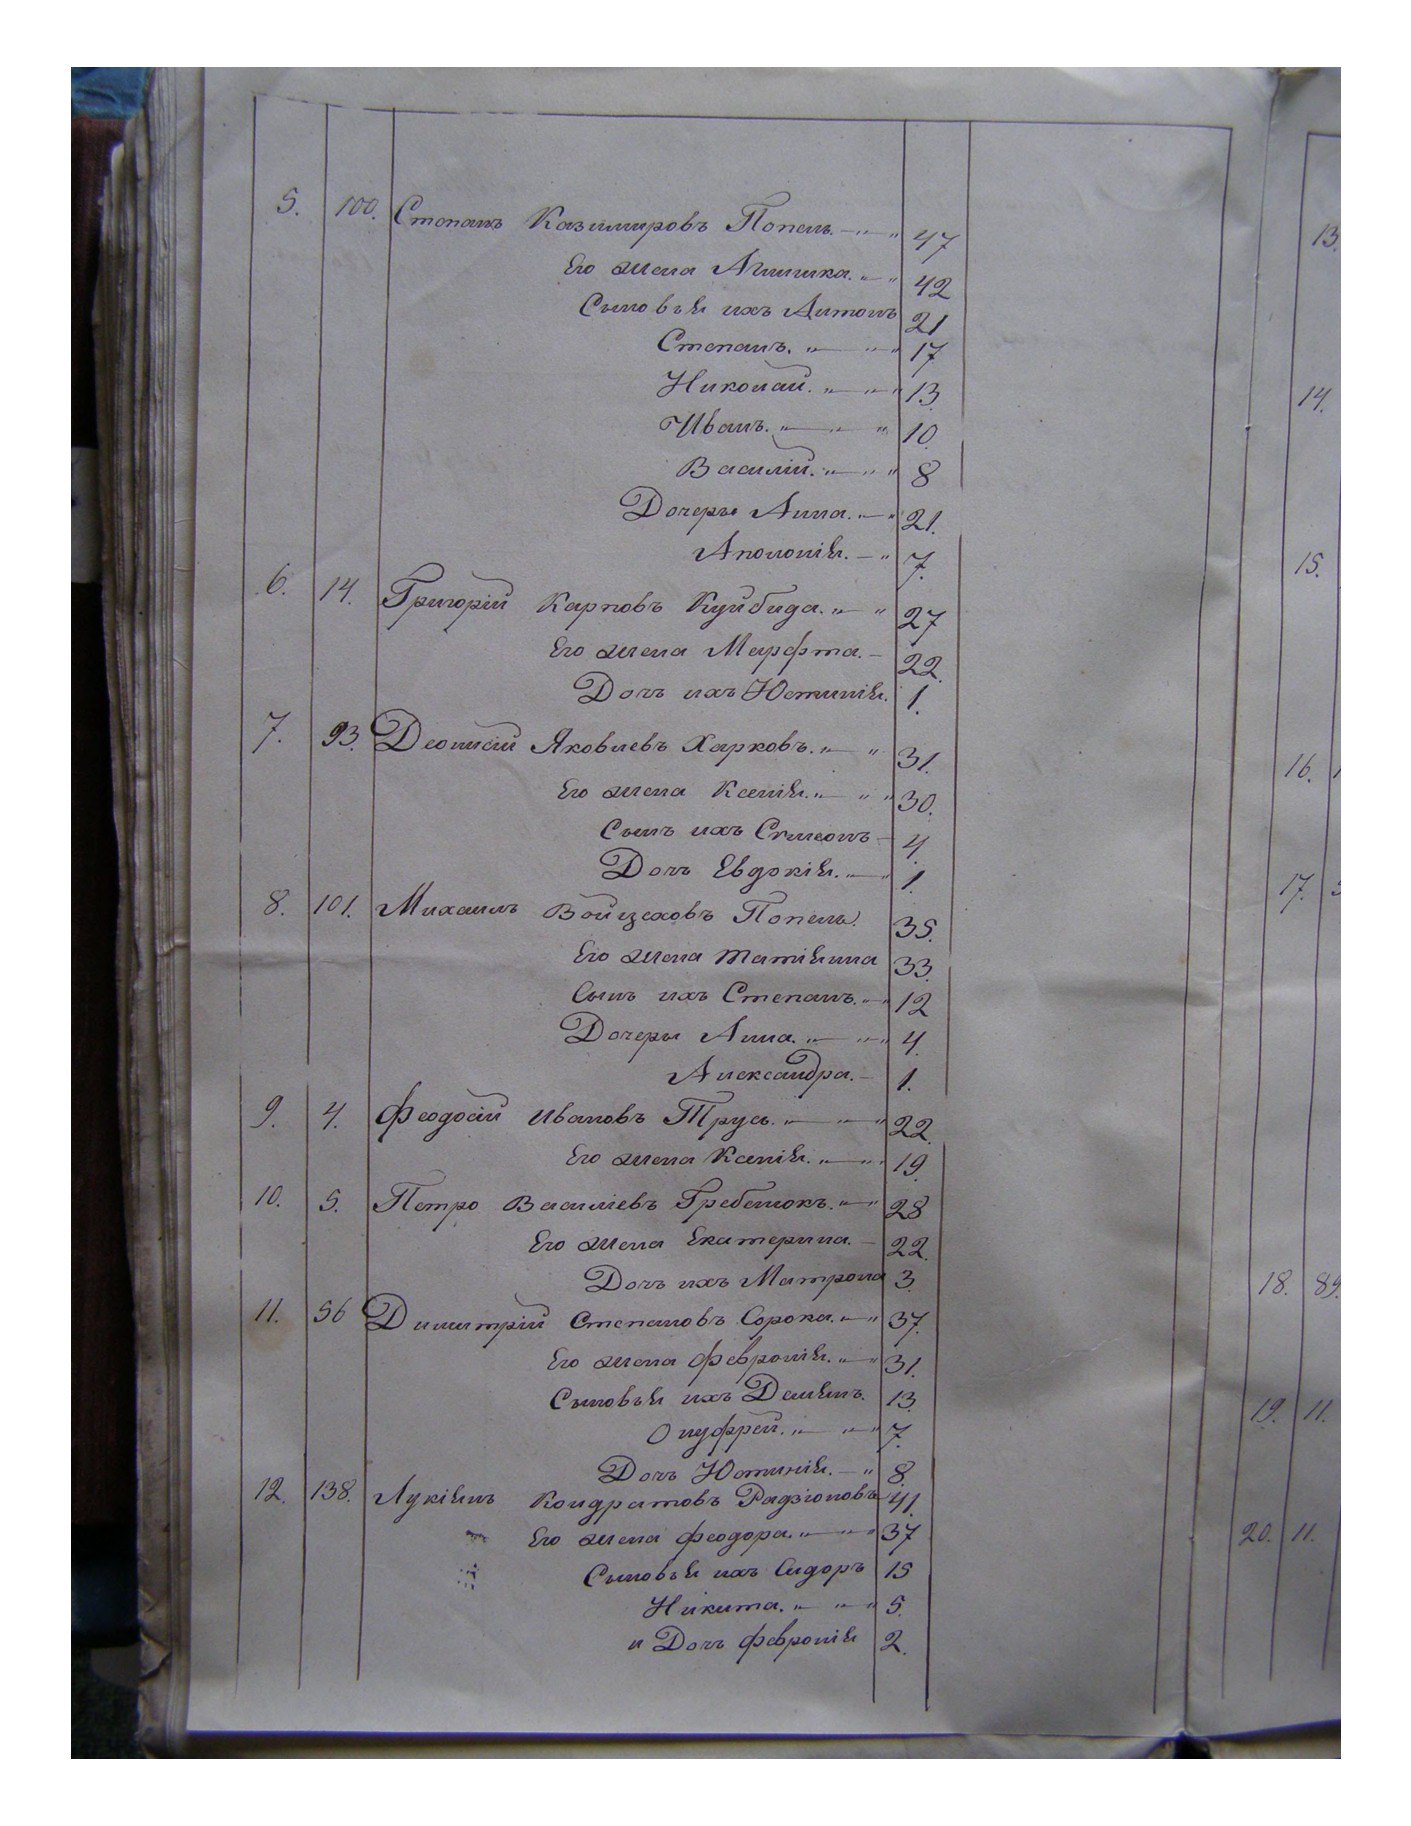 5. 100. Степанъ Казимировъ Попель. — „ — „ 47
Его жена Агнишка. „ — „ 42
Сыновья ихъ Антонъ 21
Степанъ. „ — „ — „ 17
Николай. „ — „ — „ 13
Иванъ. „ — „ — „ 10
Василій. „ — „ — „ 8
Дочеры Анна. „ — „ 21.
Аполонія. — „ 7.
6. 14. Григорій Карповъ Куйбида. „ — „ 27
Его жена Марфта. — 22.
Дочь ихъ Юстинія. 1.
7. 93. Деонисій Яковлевъ Харковъ. „ — „ 31.
Его жена Ксенія. „ — „ — „ 30.
Сынъ ихъ Симеонъ — 4.
Дочь Евдокія. „ — „ 1.
8. 101. Михаилъ Войцеховъ Попель. 35.
Его жена Татіяна 33.
Сынъ ихъ Степанъ. „ — „ 12
Дочеры Анна. „ — „ — „ 4.
Александра. — 1.
9. 4. Феодосій Ивановъ Трусъ. „ — „ — „ 22.
Его жена Ксенія. „ — „ 19.
10. 5. Петро Василіевъ Гребенюкъ. „ — „ 28
Его жена Екатерина. — 22.
Дочь ихъ Матрона 3.
11. 56 Димитрій Степановъ Сорока. „ — „ 37.
Его жена Февронія. „ — „ 31.
Сыновья ихъ Демянъ. 13.
Онуфрей. „ — „ — „ 7.
Дочь Юстинія. — „ 8.
12. 138. Лукіянъ Кондратовъ Радзіоновъ 41.
Его жена Феодора. „ — „ — „ 37
Сыновья ихъ Сидоръ 15
Никита. „ — „ — „ 5.
и Дочь Февронія 2.
13.
14.
15.
16.
17.
18. 89.
19. 11.
20. 11.